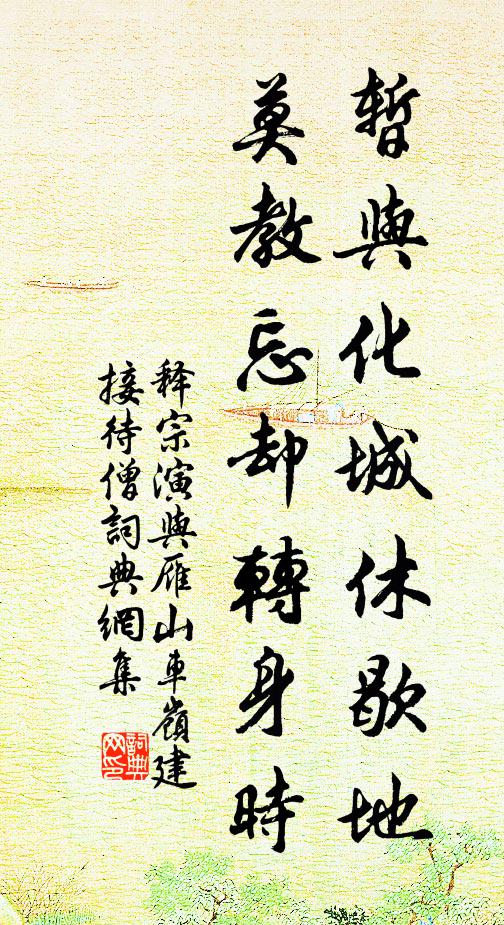 暫與化城休歇地
莫教忘却轉身時
释宗演與雁山車嶺建
接待僧詞典網集
詞典
网印